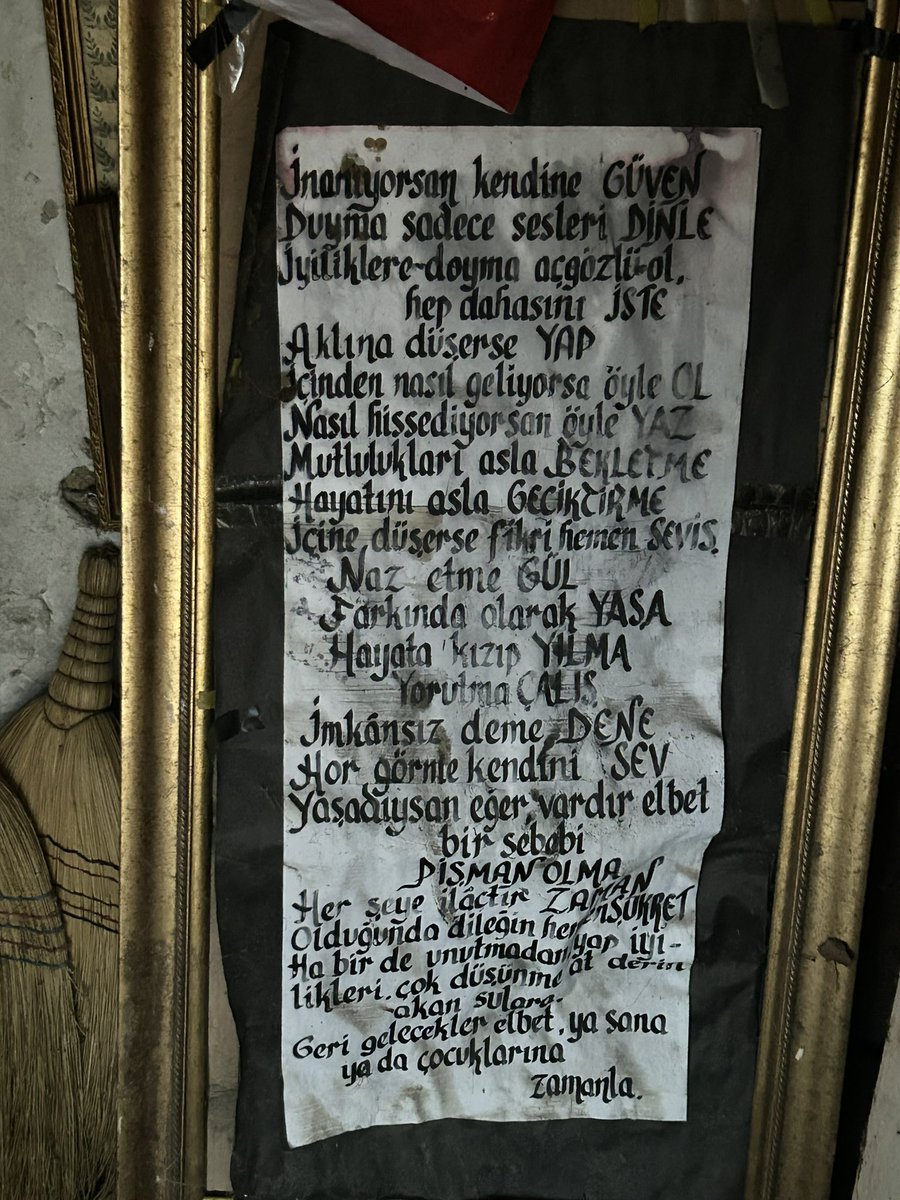 İnanıyorsan kendine GÜVEN
Duyma sadece sesleri DİNLE
İyiliklere-doyma açgözlü-ol,
hep dahasını İSTE
Aklına düşerse YAP
İçinden nasıl geliyorsa öyle OL
Nasıl hissediyorsan öyle YAZ
Mutlulukları asla BEKLETME
Hayatını asla GECİKTİRME
İçine düşerse fikri hemen SEVİŞ
Naz etme GÜL
Farkında olarak YAŞA
Hayata kızıp YILMA
Yorulma ÇALIŞ
İmkânsız deme DENE
Hor görme kendini SEV
Yaşadıysan eğer, vardır elbet
bir sebebi
PİŞMAN OLMA
Her şeye ilâçtır ZAMAN
Olduğunda dileğin hemen ŞÜKRET
Ha bir de unutmadan yap iyi-
likleri. çok düşünme at derin
akan sulara.
Geri gelecekler elbet, ya sana
ya da çocuklarına
zamanla.